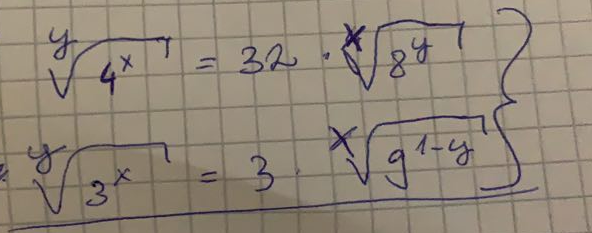 \sqrt[y]{4^x} = 32 \cdot \sqrt[x]{8^y}
\sqrt[y]{3^x} = 3 \cdot \sqrt[x]{9^{1-y}}